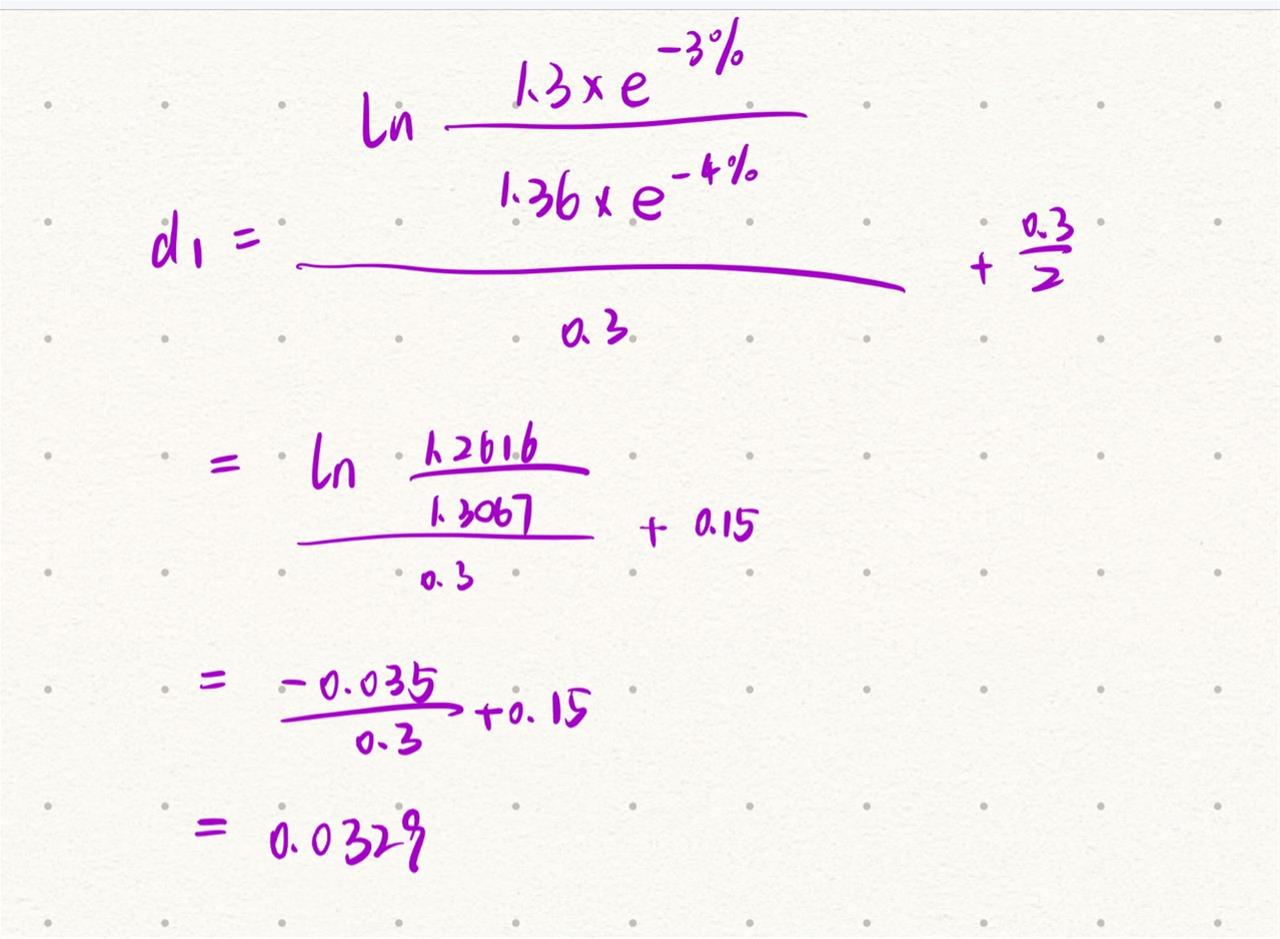 d₁ = (ln (1.3 × e^(-3%)) / (1.36 × e^(-4%))) / 0.3 + 0.3/2
= (ln 1.2616/1.3067) / 0.3 + 0.15
= -0.035/0.3 + 0.15
= 0.0329